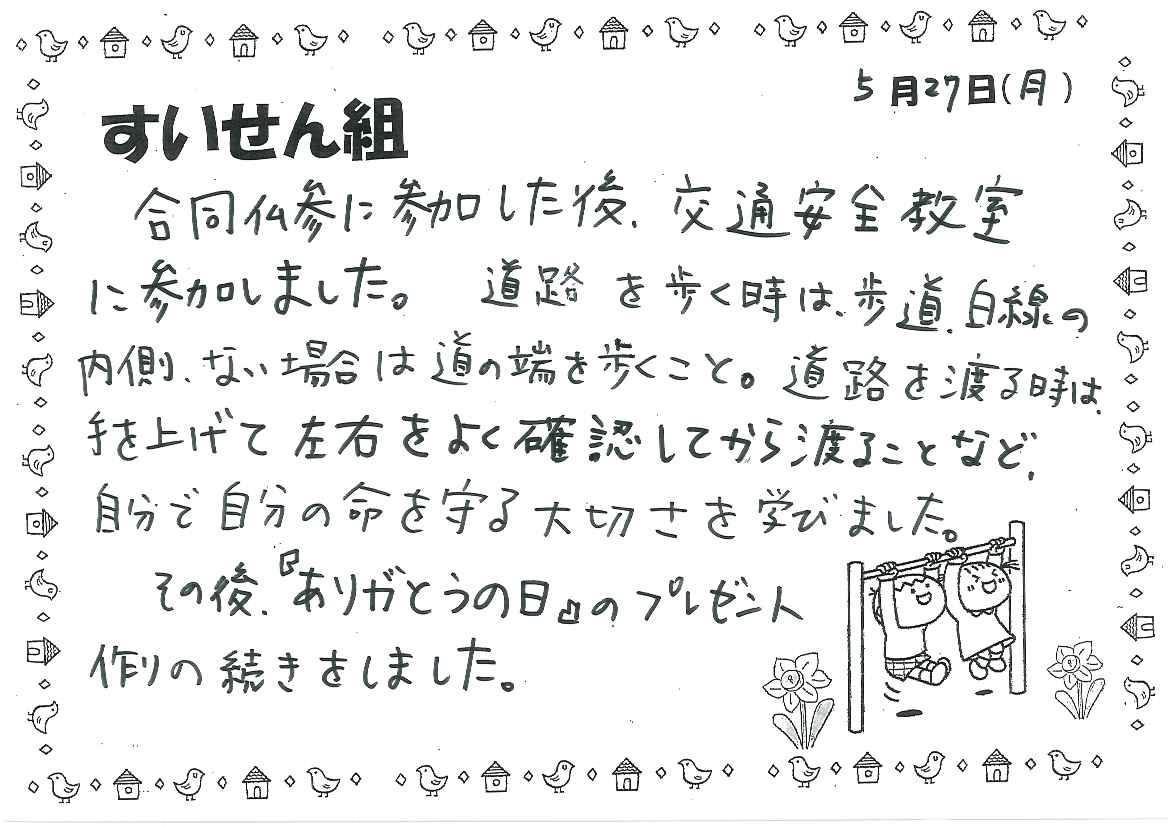 5月27日(月)
すいせん組
合同仏参に参加した後、交通安全教室
に参加しました。 道路を歩く時は、歩道、白線の
内側、ない場合は道の端を歩くこと。道路を渡る時は、
手を上げて左右をよく確認してから渡ることなど、
自分で自分の命を守る大切さを学びました。
その後、『ありがとうの日』のプレゼント
作りの続きをしました。